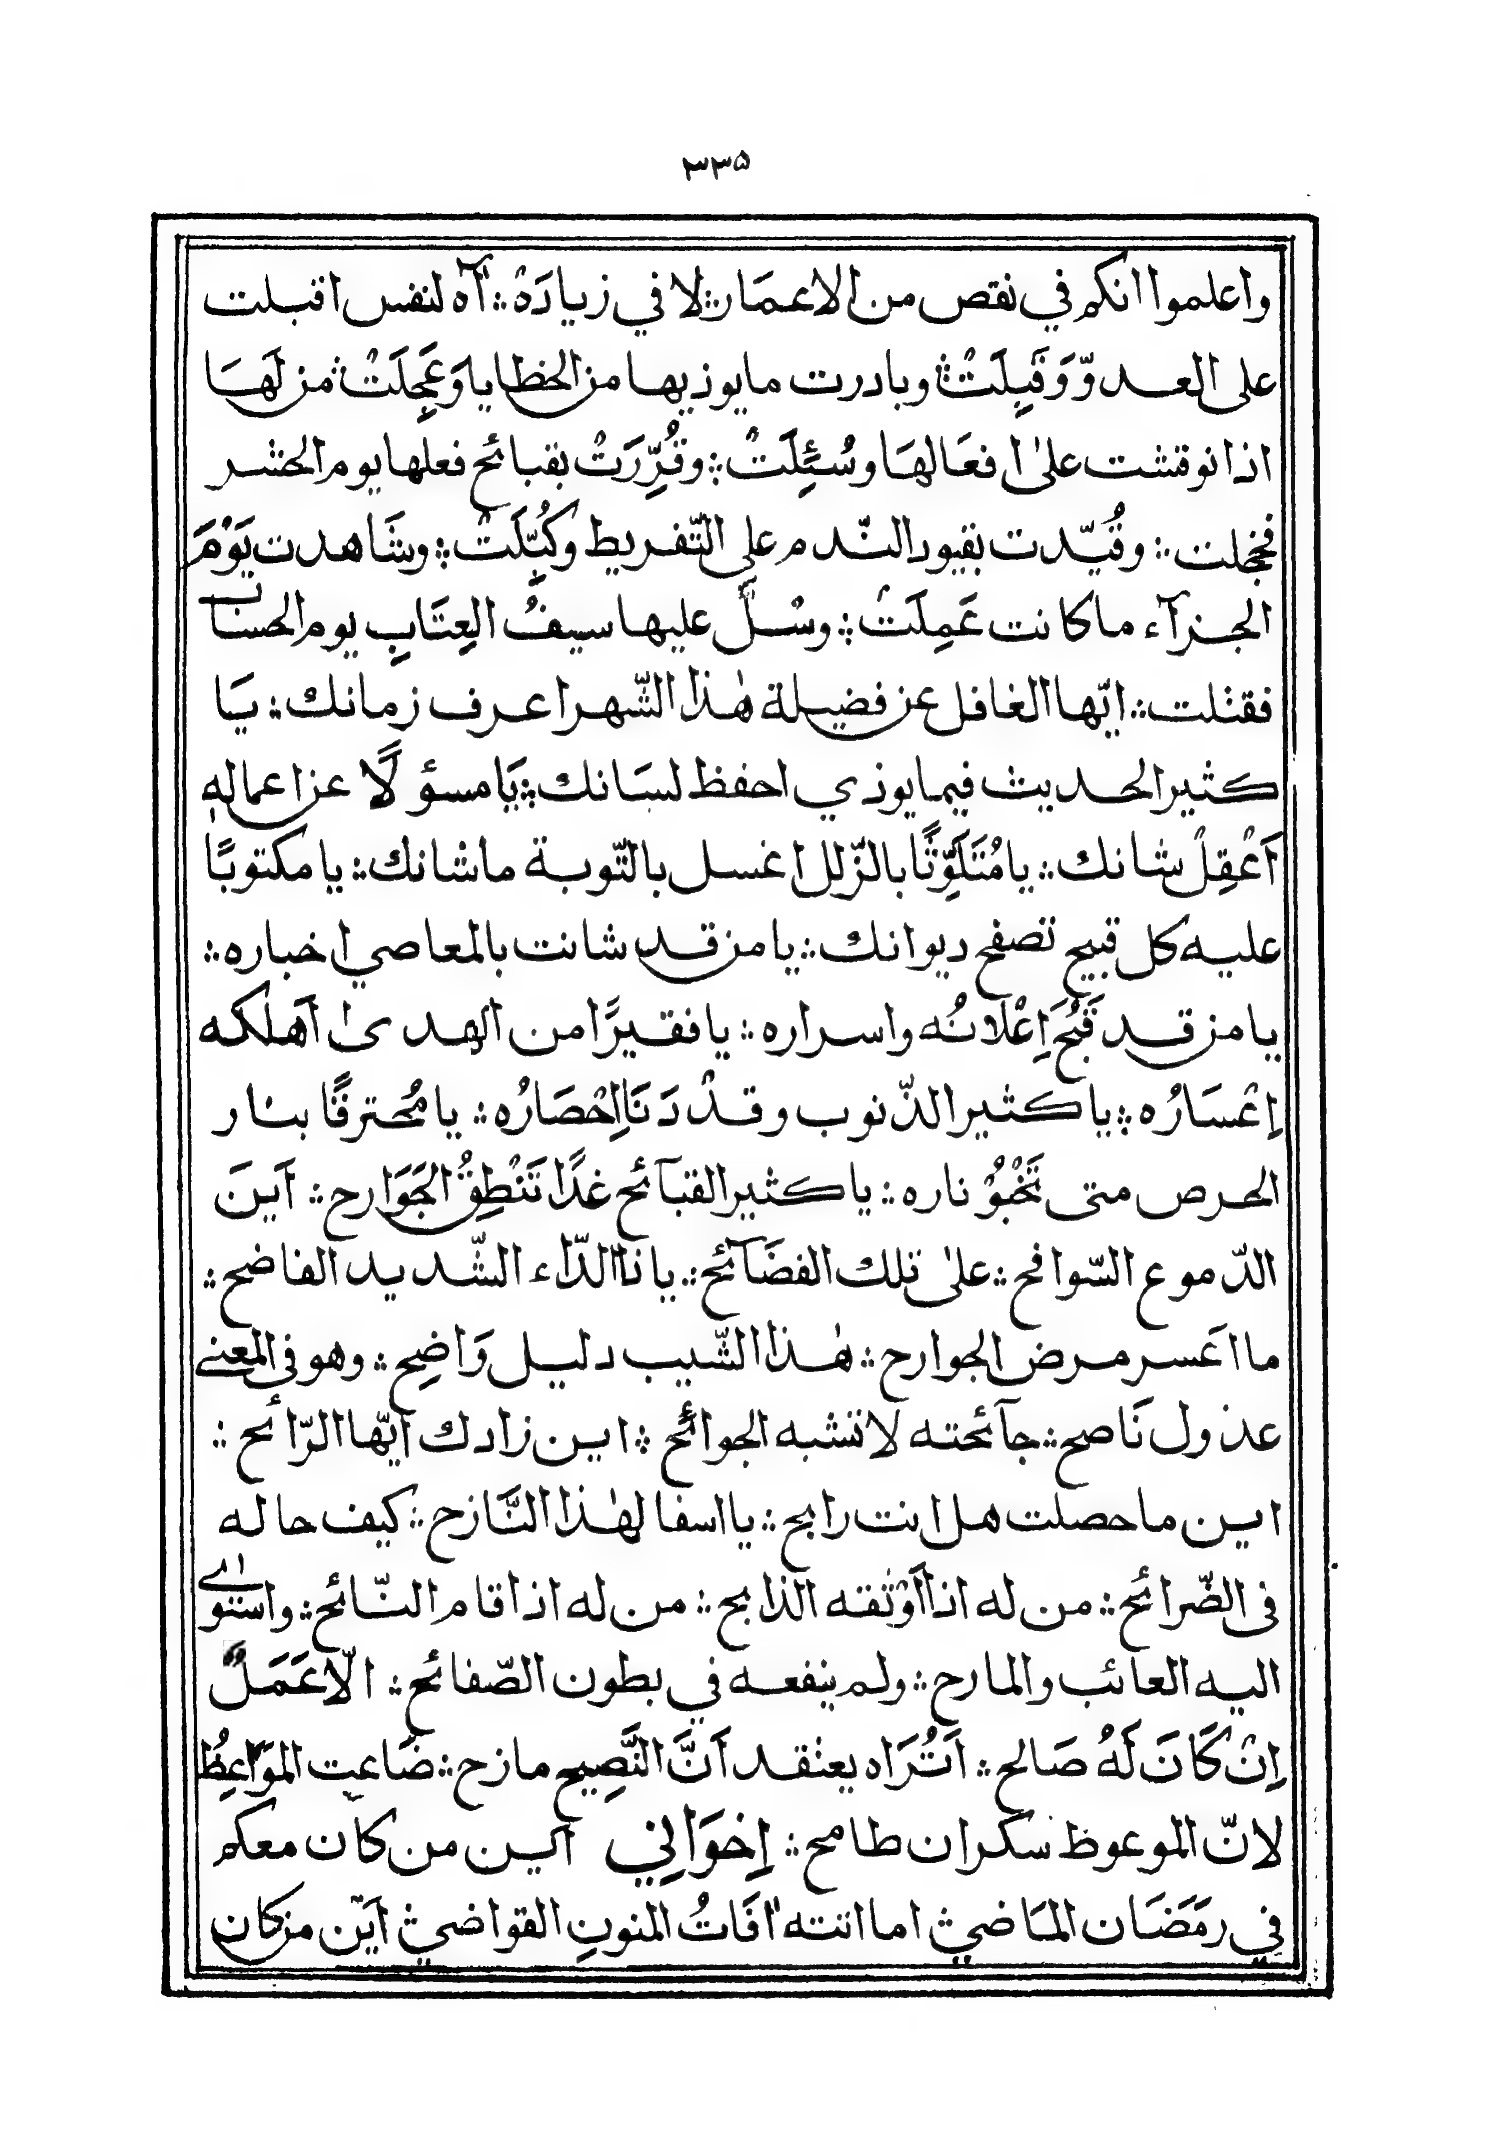 ٣٣٥
واعلموا انكم في نقص من الاعمار ؞ لا في زيادة ؞ اٰه لنفس اقبلت
على العدوّ وَقَبِلَتْ ؞ وبادرت ما يوذيها من الخطايا وَعَجِلَتْ ؞ من لَهَا
اذا نوقشت علىٰ افعَالهَا وسُئِلَتْ ؞ وقُرِّرَتْ بقبائح فعلها يوم الحشر
فخجلت ؞ وقُيّدت بقيود النّدم على التّفريط وكُبِّلَتْ ؞ وشَاهدت يَوْمَ
الجزآء ما كانت عَمِلَتْ ؞ وسُلَّ عليها سيفُ العِتَابِ يوم الحساب
فقتلت ؞ ايّها الغافل عن فضيلة هٰذا الشّهر اعرف زمانك ؞ يَا
كثير الحديث فيما يوذي احفظ لسَانك ؞ يَا مسؤلًا عن اعماله
اَعْقِلْ شانك ؞ يا مُتَلَوِّثًا بالزّلل اغسل بالتّوبة ما شانك ؞ يا مكتوبًا
عليه كل قبيح تصفح ديوانك ؞ يا من قد شانت بالمعاصي اخباره ؞
يا من قد قَبُحَ اِعْلَانُه واسراره ؞ يا فقيرًا من الهدىٰ اَهلكه
اِعْسَارُه ؞ يا كثير الذّنوب وقدْ دَنَا اِحْصَارُه ؞ يا مُحترقًا بنار
الحرص متى تَخْبُوْ ناره ؞ يا كثير القبآئح غدًا تَنْطِقُ الجَوَارح ؞ اَينَ
الدّموع السّوافح ؞ علىٰ تلك الفضَآئح ؞ يا ذا الدّاء الشّديد الفاضح ؞
ما اعَسر مرض الجوارح ؞ هٰذا الشّيب دليل وَاضِح ؞ وهو فى المعنى
عذول نَاصح ؞ جآئحته لا تشبه الجوائح ؞ اين زادك ايّها الرّائح ؞
اين ما حصلت هل انت رابح ؞ يا اسفا لهٰذا النَّازح ؞ كيف حاله
فى الضّرائح ؞ من له اذا اَوْثقه الذابح ؞ من له اذا قام النّائح ؞ واستوىٰ
اليه العائب والمارح ؞ ولم ينفعه في بطون الصّفائح ؞ الّا عَمَلٌ
اِنْ كَانَ لَهُ صَالح ؞ اَتُرَاه يعتقد اَنَّ النَّصِيح مازح ؞ ضَاعت المَوَاعِظُ
لانّ الموعوظ سكران طامح ؞ اِخوَانِي اَين من كان معكم
في رمَضَان المَاضي ؞ اما اتته اٰفَاتُ المنونِ القواضي ؞ اَيْن من كان